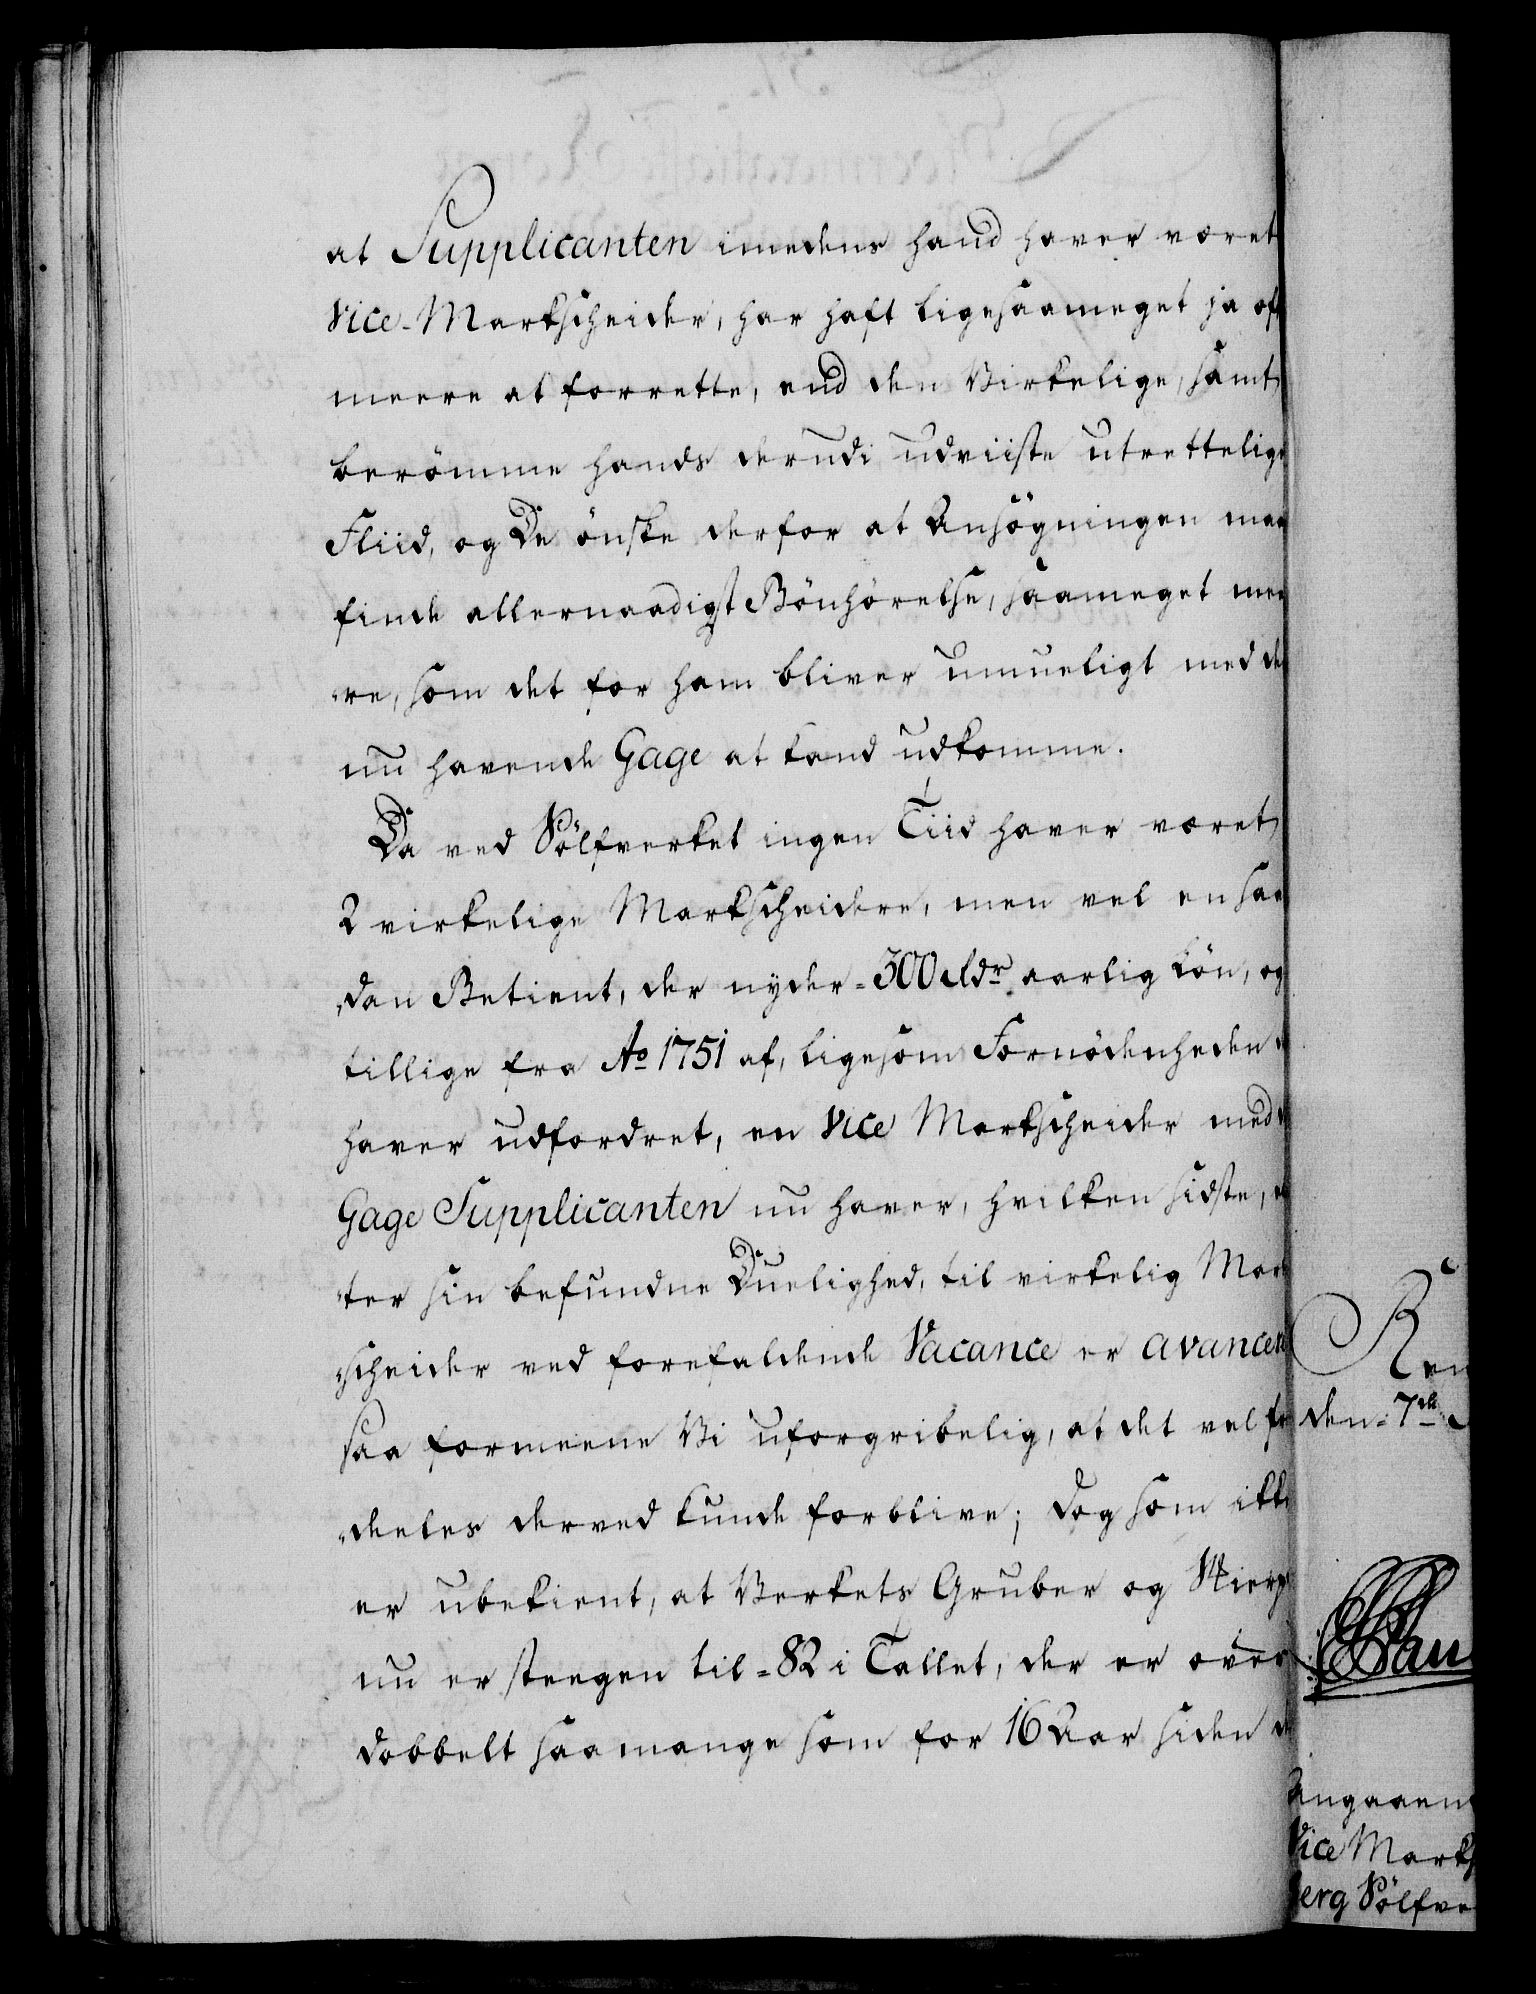 at Supplicanten imedens hand haver været
Vice-Markscheider, har haft ligesaameget ja of
meere at forrette, end den Virkelige, samt
berömme hands derudi udviiste utrettelige
Fliid, og De önske derfor at Ansögningen maa
finde allernaadigst Bönhörelse, saameget mee
re, som det for ham bliver umueligt med de
nu havende Gage at kand udkomme.
Da ved Sölfverket ingen Tiid haver været
2 virkelige Markscheidere, men vel en saa
dan Betient, der nyder 300 Rdr aarlig Lön, og
tillige fra Ao 1751 af, ligesom Fornödenheden
haver udfordret, en Vice Markscheider med
Gage Supplicanten nu haver, hvilken sidste, ef
ter sin befundne Duelighed, til virkelig Mark
scheider ved forefaldende Vacance er avancer
saa formeene Vi uforgribelig, at det vel frem
deeles derved kunde forblive; dog som ikke
er ubekient, at Verkets Gruber og Skierp
nu er steegen til 82 i Tallet, der er over
dobbelt saamange som for 16 Aar siden
Ren
den 7de
Angaaend
Vice Marksc
berg Sölfve